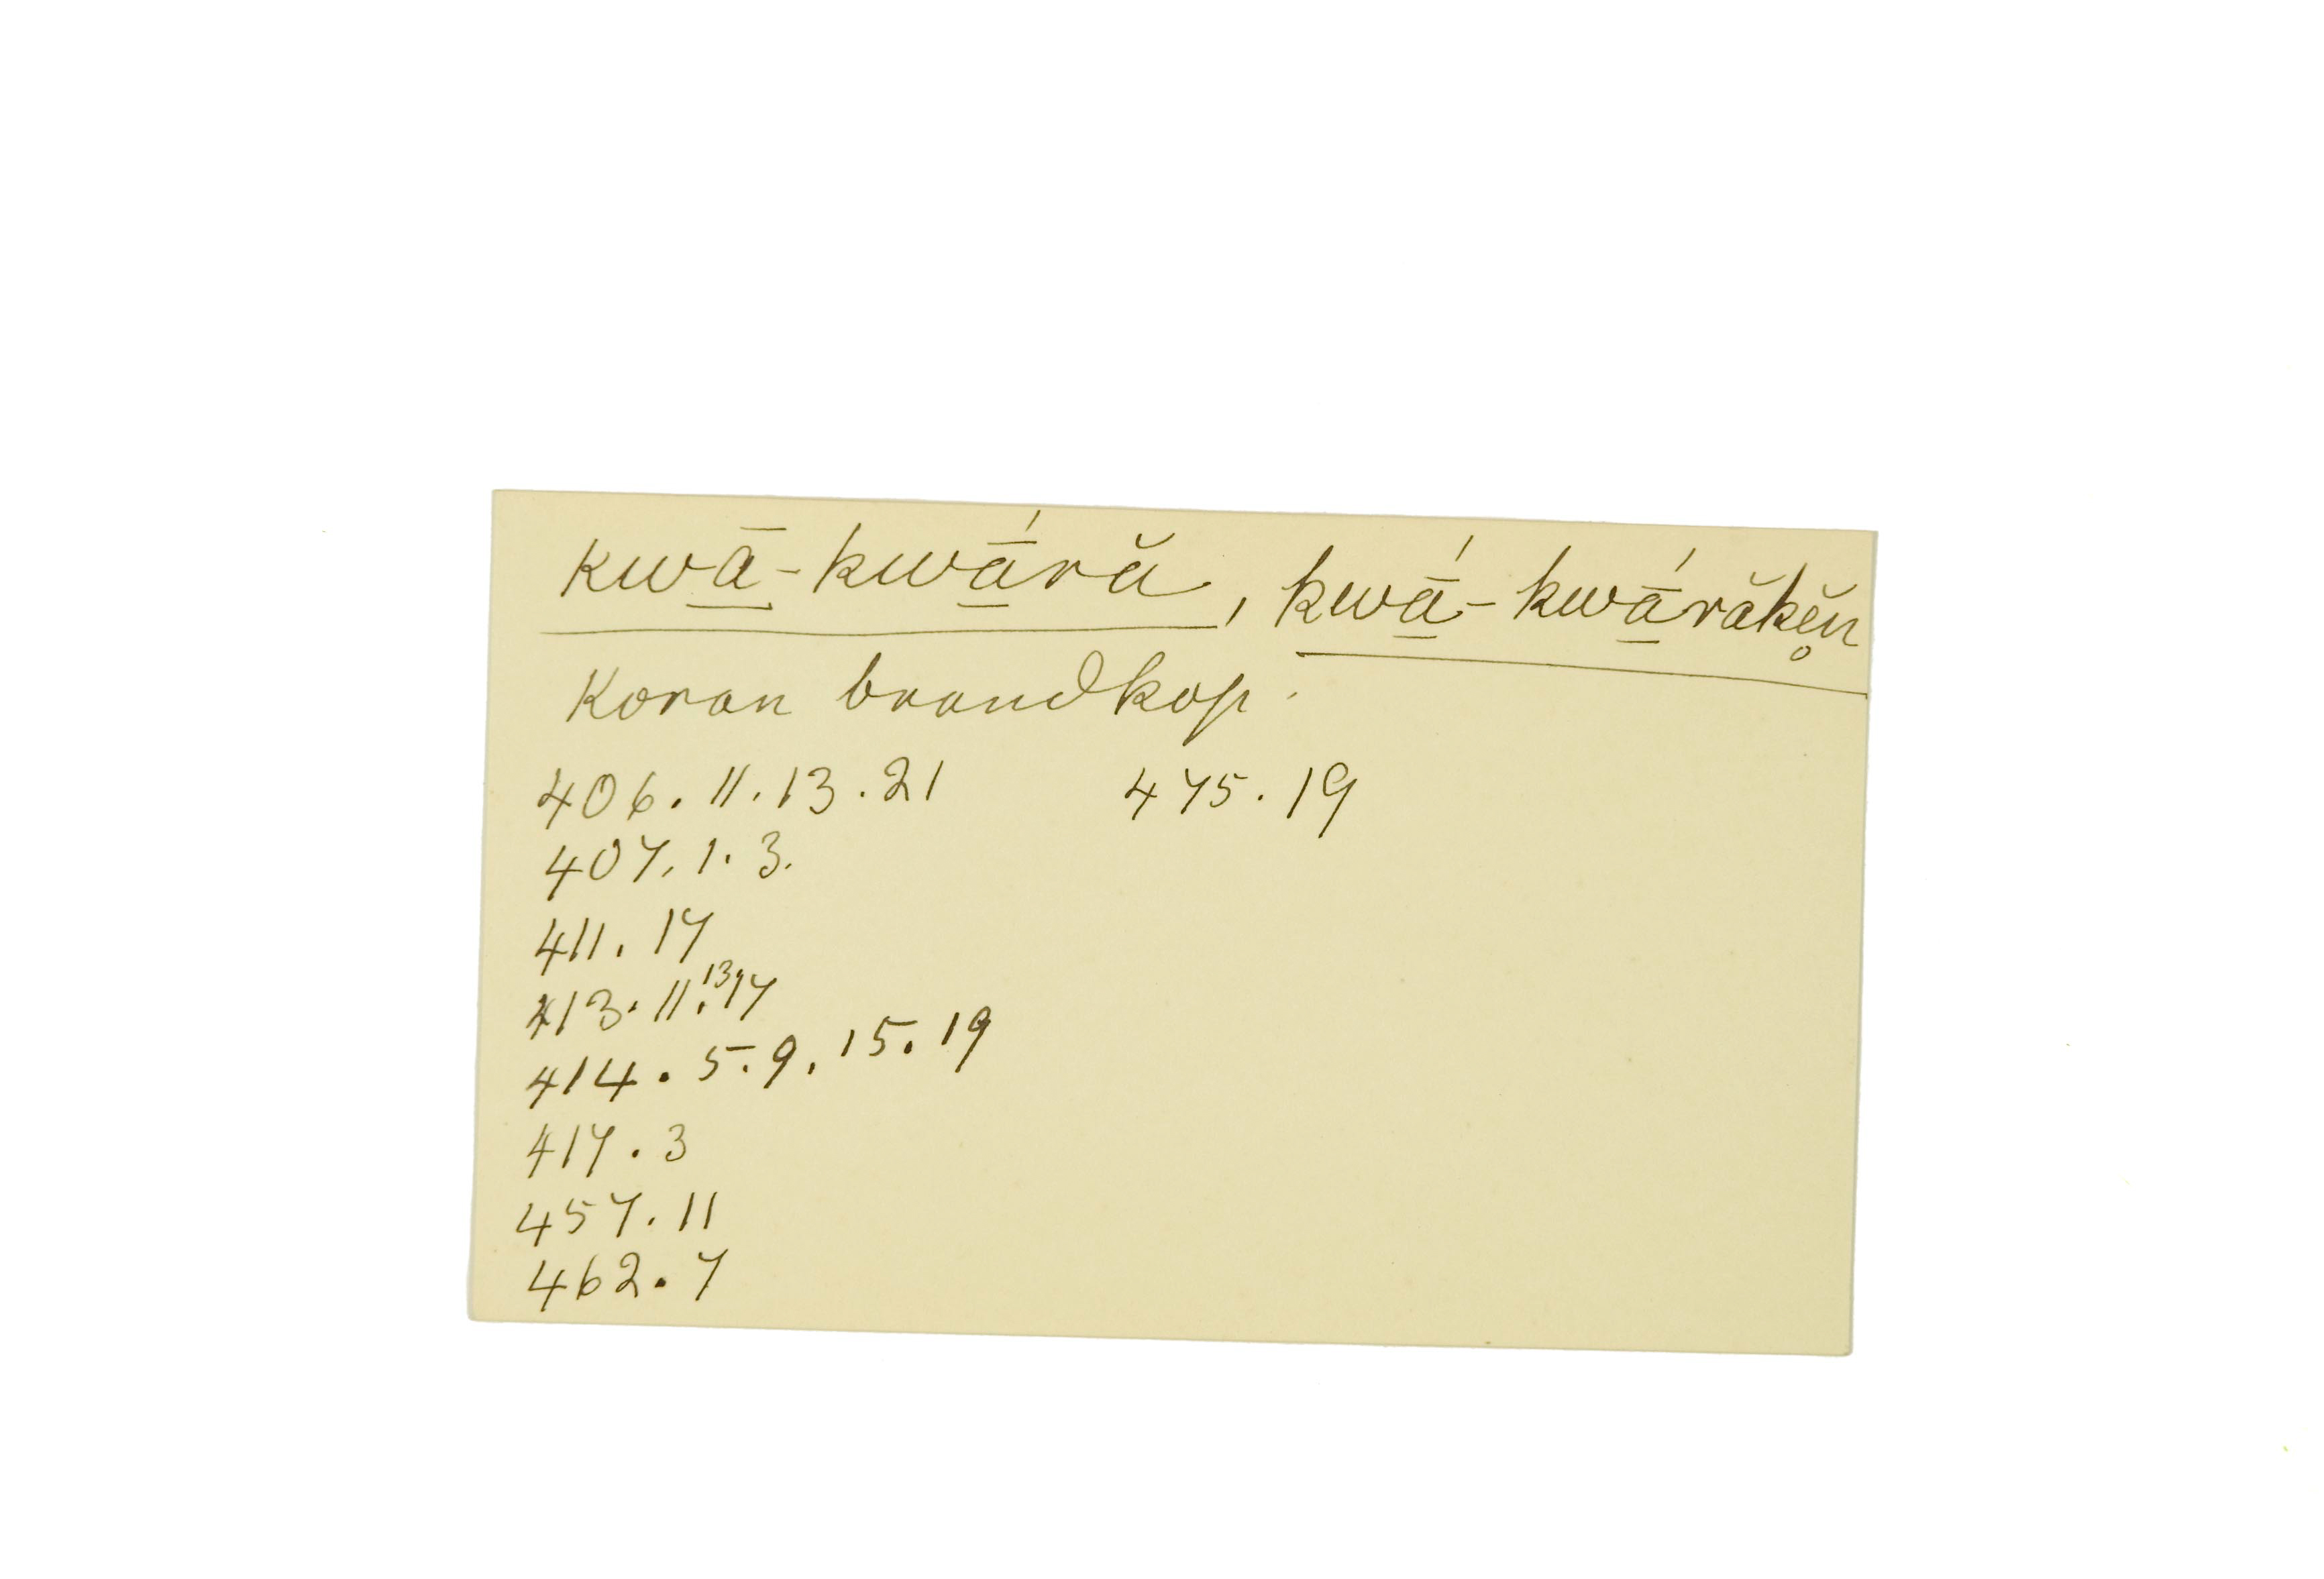 kwā̱-kwā̱́ră, kwā̱́-kwā̱́răkĕ̥n
Koran brandkop.
406. 11. 13. 21 475. 19
407. 1. 3.
411. 17
413. 11. 13. 17
414. 5. 9. 15. 19
417. 3
457. 11
462. 7